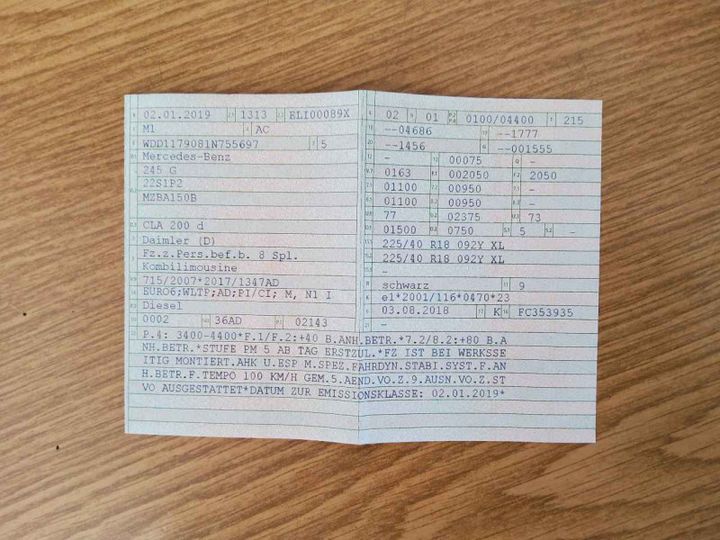 02.01.2019 1313 ELI00089X
M1 AC
WDD1179081N755697 5
Mercedes-Benz
245 G
22S1P2
MZBA150B
CLA 200 d
Daimler (D)
Fz.z.Pers.bef.b. 8 Spl.
Kombilimousine
715/2007*2017/1347AD
EURO6;WLTP;AD;PI/CI; M, N1 I
Diesel
0002 36AD 02143
02 01 0100/04400 215
--04686 --1777
--1456 --001555
- 00075 -
0163 002050 2050
01100 00950 -
01100 00950 -
77 02375 73
01500 0750 5 -
225/40 R18 092Y XL
225/40 R18 092Y XL
-
schwarz 9
e1*2001/116*0470*23
03.08.2018 K FC353935
-
P.4: 3400-4400*F.1/F.2:+40 B.ANH.BETR.*7.2/8.2:+80 B.A
NH.BETR.*STUFE PM 5 AB TAG ERSTZUL.*FZ IST BEI WERKSSE
ITIG MONTIERT.AHK U.ESP M.SPEZ.FAHRDYN.STABI.SYST.F.AN
H.BETR.F.TEMPO 100 KM/H GEM.5.AEND.VO.Z.9.AUSN.VO.Z.ST
VO AUSGESTATTET*DATUM ZUR EMISSIONSKLASSE: 02.01.2019*